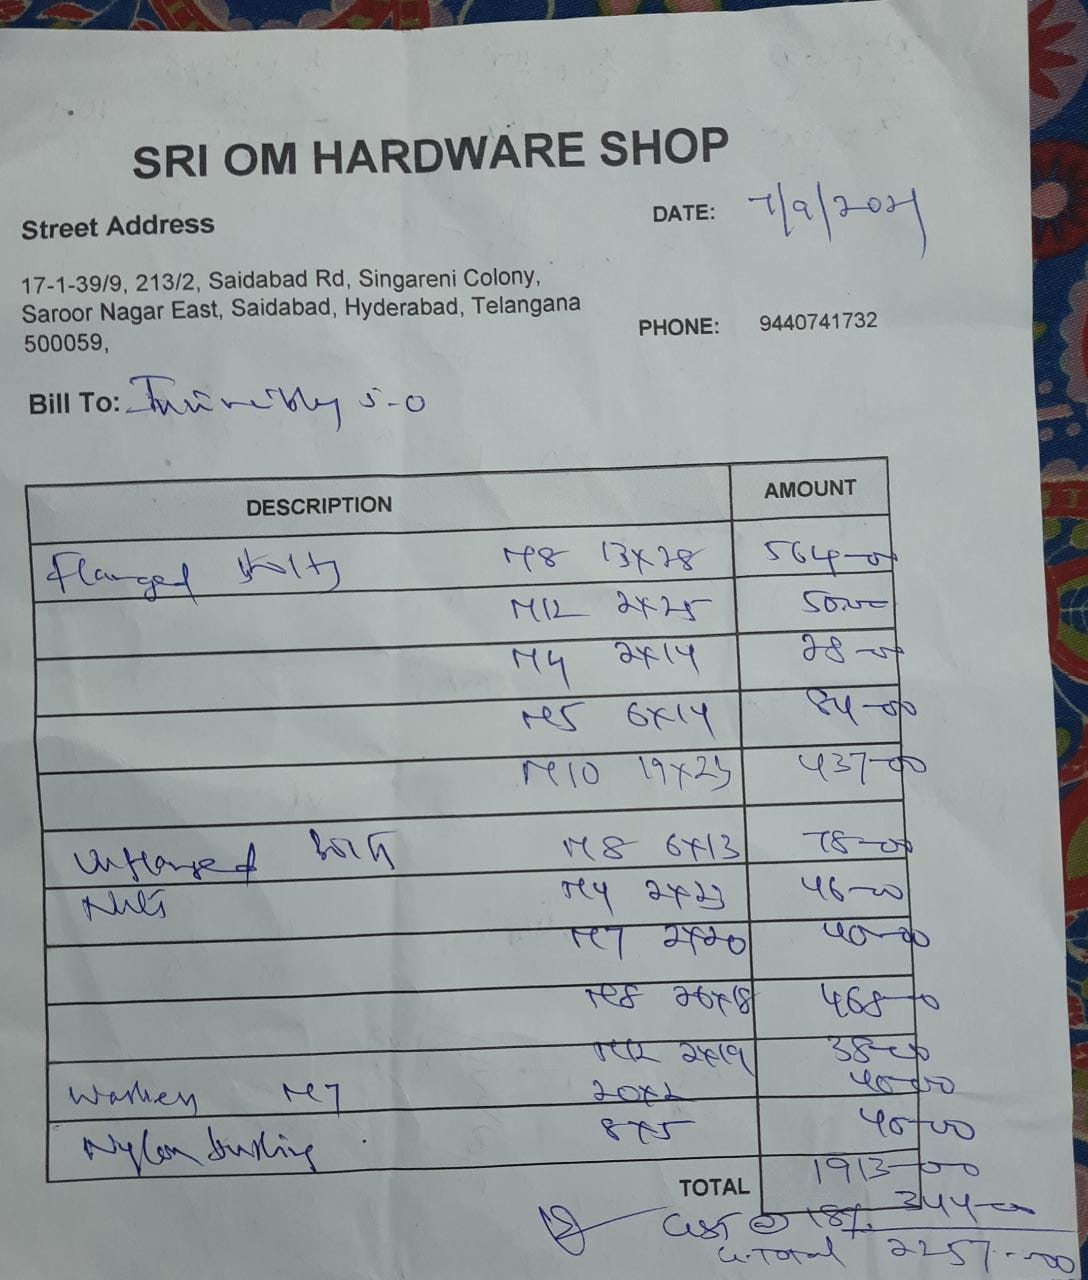 SRI OM HARDWARE SHOP
Street Address
DATE: 7/9/2021
17-1-39/9, 213/2, Saidabad Rd, Singareni Colony,
Saroor Nagar East, Saidabad, Hyderabad, Telangana
500059,
PHONE: 9440741732
Bill To: 5-0
DESCRIPTION AMOUNT
Flanged bolts M8 13x28 564-00
M12 2x25 50.00
M4 2x14 28-00
M5 6x14 84-00
M10 19x23 437-00
Unflanged bolts M8 6x13 78-00
Nuts M4 2x23 46-00
M7 2x20 40-00
M8 26x18 468-00
M12 2x19 38-00
Washers M7 20x2 40-00
Nylon bushing 8x5 40-00
TOTAL 1913-00
GST @ 18% 344-00
G.Total 2257-00